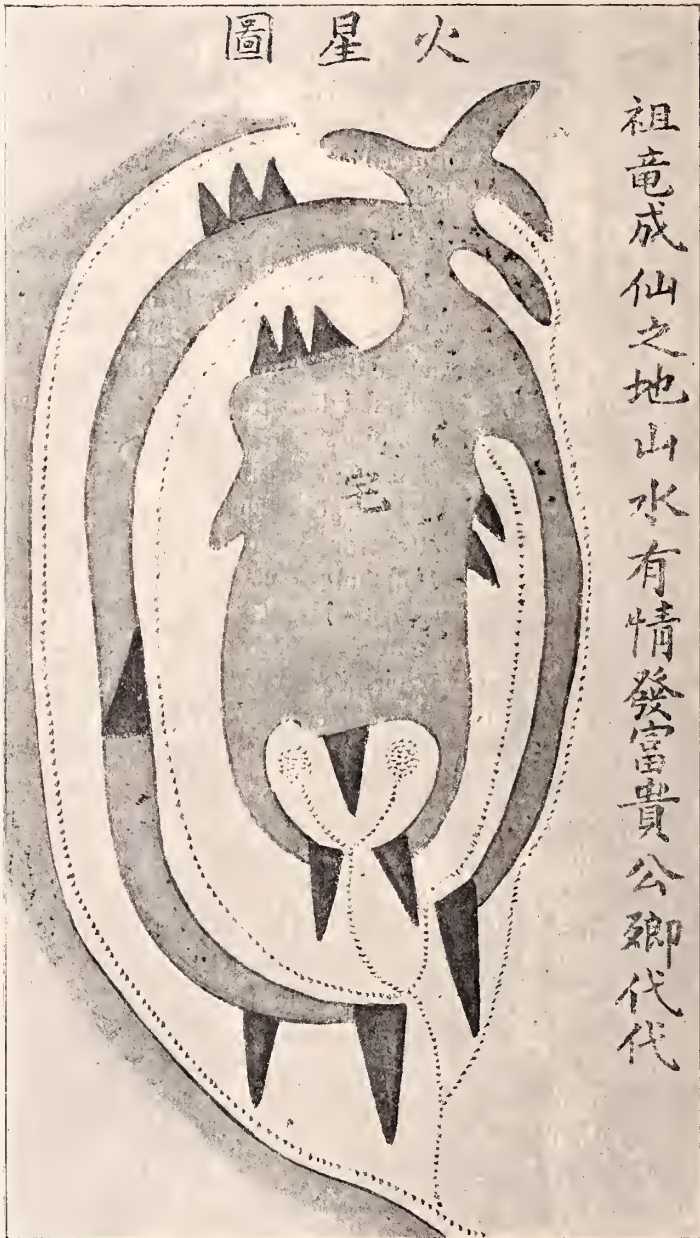 火星圖
祖竜成仙之地山水有情發富貴公卿代代
宅